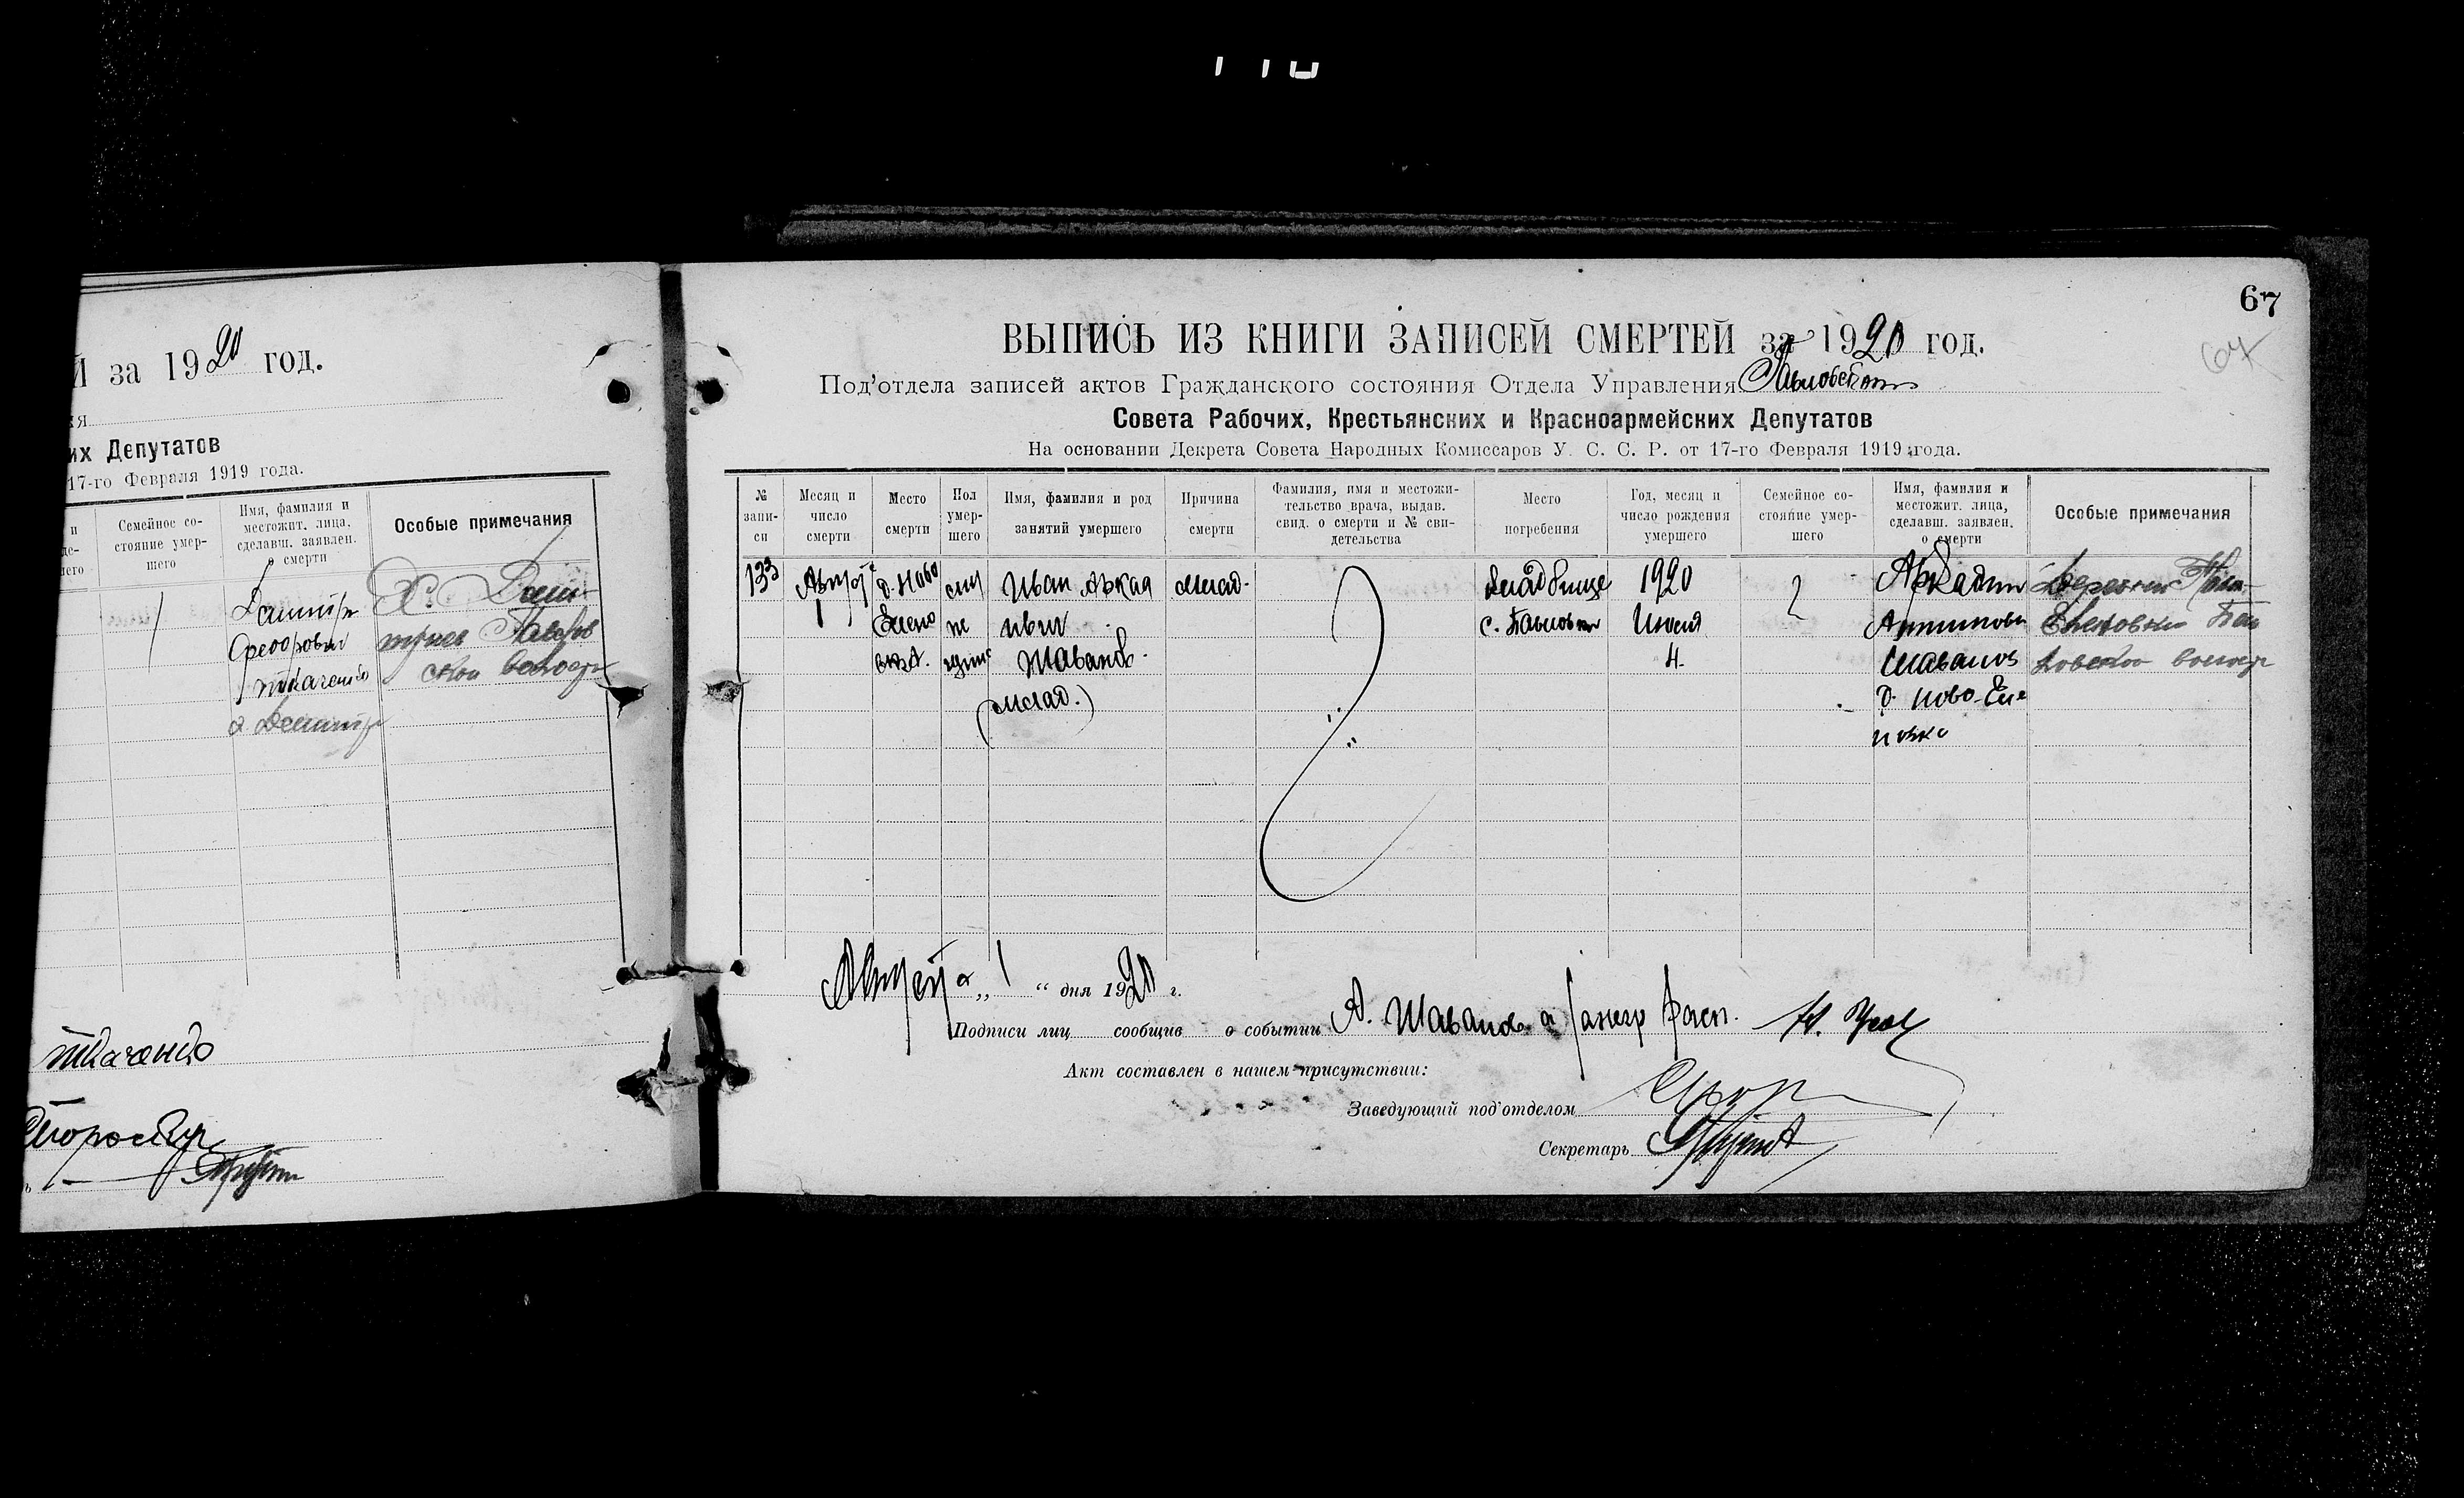 Й за 1920 год.
ия
их Депутатов
17-го Февраля 1919 года.
Семейное со-
стояние умер-
шего
Имя, фамилия и
местожит. лица,
сделавш. заявлен.
о смерти
Особые примечания
Федорович
Ткаченко
67
67
ВЫПИСЬ ИЗ КНИГИ ЗАПИСЕЙ СМЕРТЕЙ за 1920 год.
Под'отдела записей актов Гражданского состояния Отдела Управления
Совета Рабочих, Крестьянских и Красноармейских Депутатов
На основании Декрета Совета Народных Комиссаров У. С. С. Р. от 17-го Февраля 1919 года.
№
запи-
си
Месяц и
число
смерти
Место
смерти
Пол
умер-
шего
Имя, фамилия и род
занятий умершего
Причина
смерти
Фамилия, имя и местожи-
тельство врача, выдав.
свид. о смерти и № сви-
детельства
Место
погребения
Год, месяц и
число рождения
умершего
Семейное со-
стояние умер-
шего
Имя, фамилия и
местожит. лица,
сделавш. заявлен.
о смерти
Особые примечания
133
Август
1
д. Ново
Елено
вка.
Иван Аркад
ивич
Шаванов
(млад.)
млад.
кладбище
с. Павловки
1920
Июля
4
Аркадий
Шаванов
д. Ново-Еле
новка
Августа „ 1 “ дня 1920 г.
Подписи лиц сообщив о событии А. Шаванов а
Акт составлен в нашем присутствии:
Заведующий под'отделом
Секретарь
Ткаченко